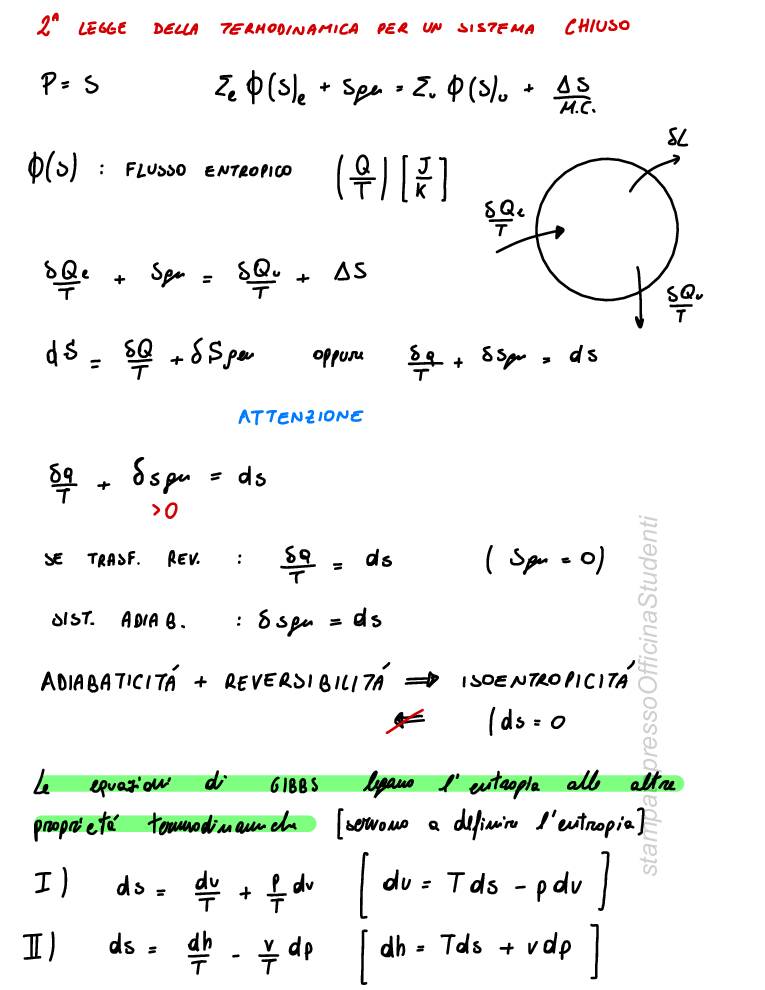 2ª LEGGE DELLA TERMODINAMICA PER UN SISTEMA CHIUSO
P = S Σe ϕ(S)e + Sgen = Σu ϕ(S)u + ΔS/M.C.
ϕ(S) : FLUSSO ENTROPICO (Q/T) [J/K]
δL
δQe/T
δQu/T
δQe/T + Sgen = δQu/T + ΔS
dS = δQ/T + δSgen oppure δq/T + δsgen = ds
ATTENZIONE
δq/T + δsgen = ds
>0
SE TRASF. REV. : δq/T = ds (Sgen = 0)
SIST. ADIAB. : δsgen = ds
ADIABATICITÁ + REVERSIBILITÁ ⇒ ISOENTROPICITÁ
⇐ (ds = 0
Le equazioni di GIBBS legano l'entropia alle altre
proprietá termodinamiche [servono a definire l'entropia]
I) ds = du/T + p/T dv [du = Tds - pdv]
II) ds = dh/T - v/T dp [dh = Tds + vdp]
stampatopressoOfficinaStudenti